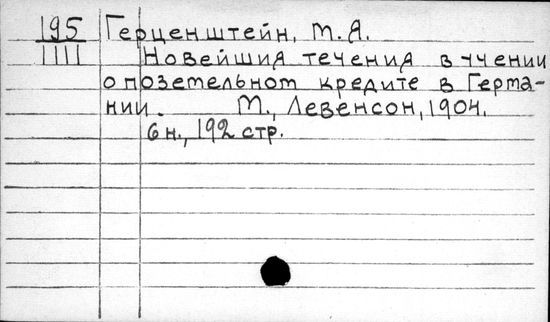 195 Герценштейн, М.А.
1111 Новейшия течения в учении
о поземельном кредите в Герма-
нии. М., Левенсон, 1904.
6 н., 192 стр.